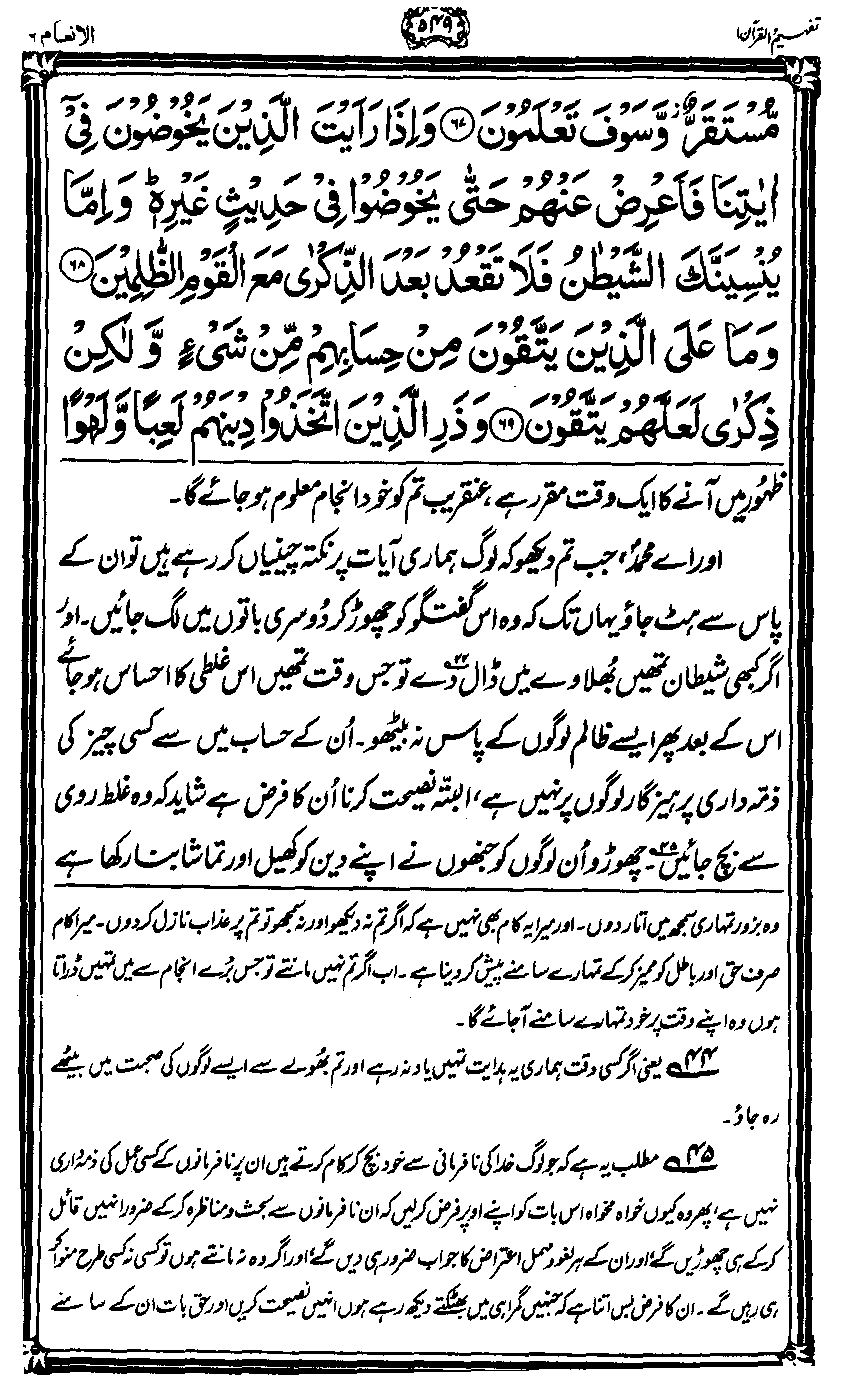 تفہیم القرآن ۱
۵۴۹
الانعام ۶
مُّسْتَقَرٌّ ۫ وَّسَوْفَ تَعْلَمُوْنَ ﴿۶۷﴾ وَاِذَا رَاَيْتَ الَّذِيْنَ يَخُوْضُوْنَ فِيْۤ
اٰيٰتِنَا فَاَعْرِضْ عَنْهُمْ حَتّٰى يَخُوْضُوْا فِيْ حَدِيْثٍ غَيْرِهٖ ؕ وَاِمَّا
يُنْسِيَنَّكَ الشَّيْطٰنُ فَلَا تَقْعُدْ بَعْدَ الذِّكْرٰى مَعَ الْقَوْمِ الظّٰلِمِيْنَ ﴿۶۸﴾
وَمَا عَلَى الَّذِيْنَ يَتَّقُوْنَ مِنْ حِسَابِهِمْ مِّنْ شَيْءٍ وَّلٰكِنْ
ذِكْرٰى لَعَلَّهُمْ يَتَّقُوْنَ ﴿۶۹﴾ وَذَرِ الَّذِيْنَ اتَّخَذُوْا دِيْنَهُمْ لَعِبًا وَّلَهْوًا
ظہُور میں آنے کا ایک وقت مقرر ہے، عنقریب تم کو خود انجام معلوم ہو جائے گا۔
اور اے محمدؐ، جب تم دیکھو کہ لوگ ہماری آیات پر نکتہ چینیاں کر رہے ہیں تو ان کے
پاس سے ہٹ جاؤ یہاں تک کہ وہ اس گفتگو کو چھوڑ کر دُوسری باتوں میں لگ جائیں۔ اور
اگر کبھی شیطان تمھیں بُھلاوے میں ڈال دے۴۴ تو جس وقت تمھیں اس غلطی کا احساس ہو جائے
اس کے بعد پھر ایسے ظالم لوگوں کے پاس نہ بیٹھو۔ اُن کے حساب میں سے کسی چیز کی
ذمّہ داری پرہیزگار لوگوں پر نہیں ہے، البتّہ نصیحت کرنا اُن کا فرض ہے شاید کہ وہ غلط روی
سے بچ جائیں۴۵۔ چھوڑو اُن لوگوں کو جنھوں نے اپنے دین کو کھیل اور تماشا بنا رکھا ہے
وہ بزور تمہاری سمجھ میں اتار دوں۔ اور میرا یہ کام بھی نہیں ہے کہ اگر تم نہ دیکھو اور نہ سمجھو تو تم پر عذاب نازل کر دوں۔ میرا کام
صرف حق اور باطل کو ممیز کر کے تمہارے سامنے پیش کر دینا ہے۔ اب اگر تم نہیں مانتے تو جس بُرے انجام سے میں تمہیں ڈراتا
ہوں وہ اپنے وقت پر خود تمہارے سامنے آجائے گا۔
۴۴ یعنی اگر کسی وقت ہماری یہ ہدایت تمہیں یاد نہ رہے اور تم بھُولے سے ایسے لوگوں کی صحبت میں بیٹھے
رہ جاؤ۔
۴۵ مطلب یہ ہے کہ جو لوگ خدا کی نافرمانی سے خود بچ کر کام کرتے ہیں ان پر نافرمانوں کے کسی عمل کی ذمہ داری
نہیں ہے، پھر وہ کیوں خواہ مخواہ اس بات کو اپنے اوپر فرض کر لیں کہ ان نافرمانوں سے بحث و مناظرہ کر کے ضرور انہیں قائل
کر کے ہی چھوڑیں گے، اور ان کے ہر لغو و مہمل اعتراض کا جواب ضرور ہی دیں گے، اور اگر وہ نہ مانتے ہوں تو کسی نہ کسی طرح منوا کر
ہی رہیں گے۔ ان کا فرض بس اتنا ہے کہ جنہیں گمراہی میں بھٹکتے دیکھ رہے ہوں انہیں نصیحت کریں اور حق بات ان کے سامنے